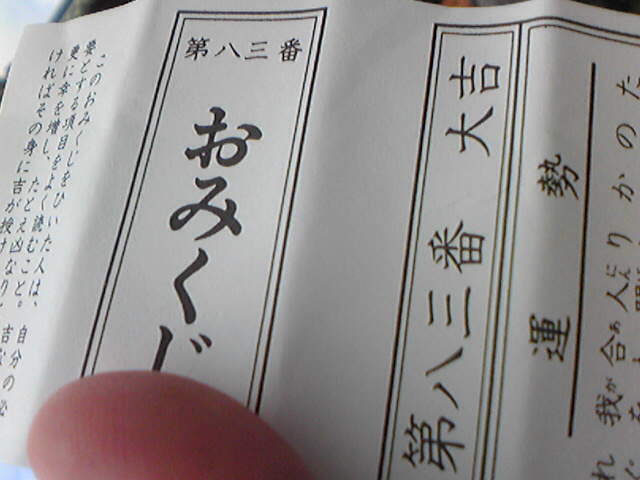 第八三番 大吉
運勢
第八三番
おみくじ
このおみくじをひいた人は、自分の必
要とする項目をよく読むこと。吉
更に幸を増し、たとえ凶なり
ければその身に吉が授け